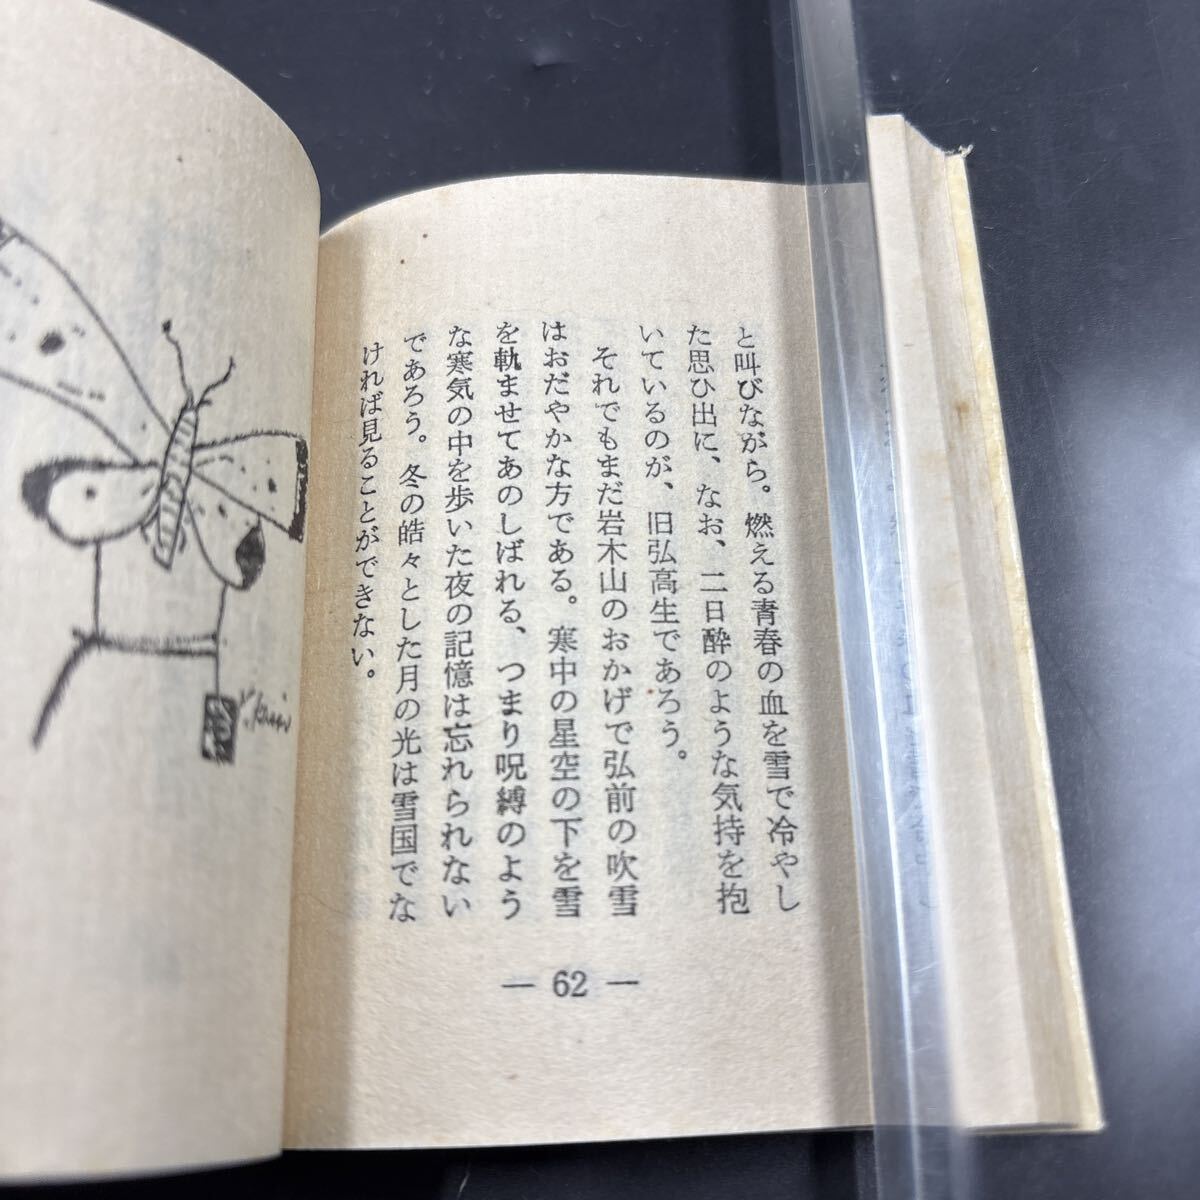 と叫びながら。燃える青春の血を雪で冷やし
た思ひ出に、なお、二日酔のような気持を抱
いているのが、旧弘高生であろう。
それでもまだ岩木山のおかげで弘前の吹雪
はおだやかな方である。寒中の星空の下を雪
を軌ませてあのしばれる、つまり呪縛のよう
な寒気の中を歩いた夜の記憶は忘れられない
であろう。冬の皓々とした月の光は雪国でな
ければ見ることができない。
— 62 —